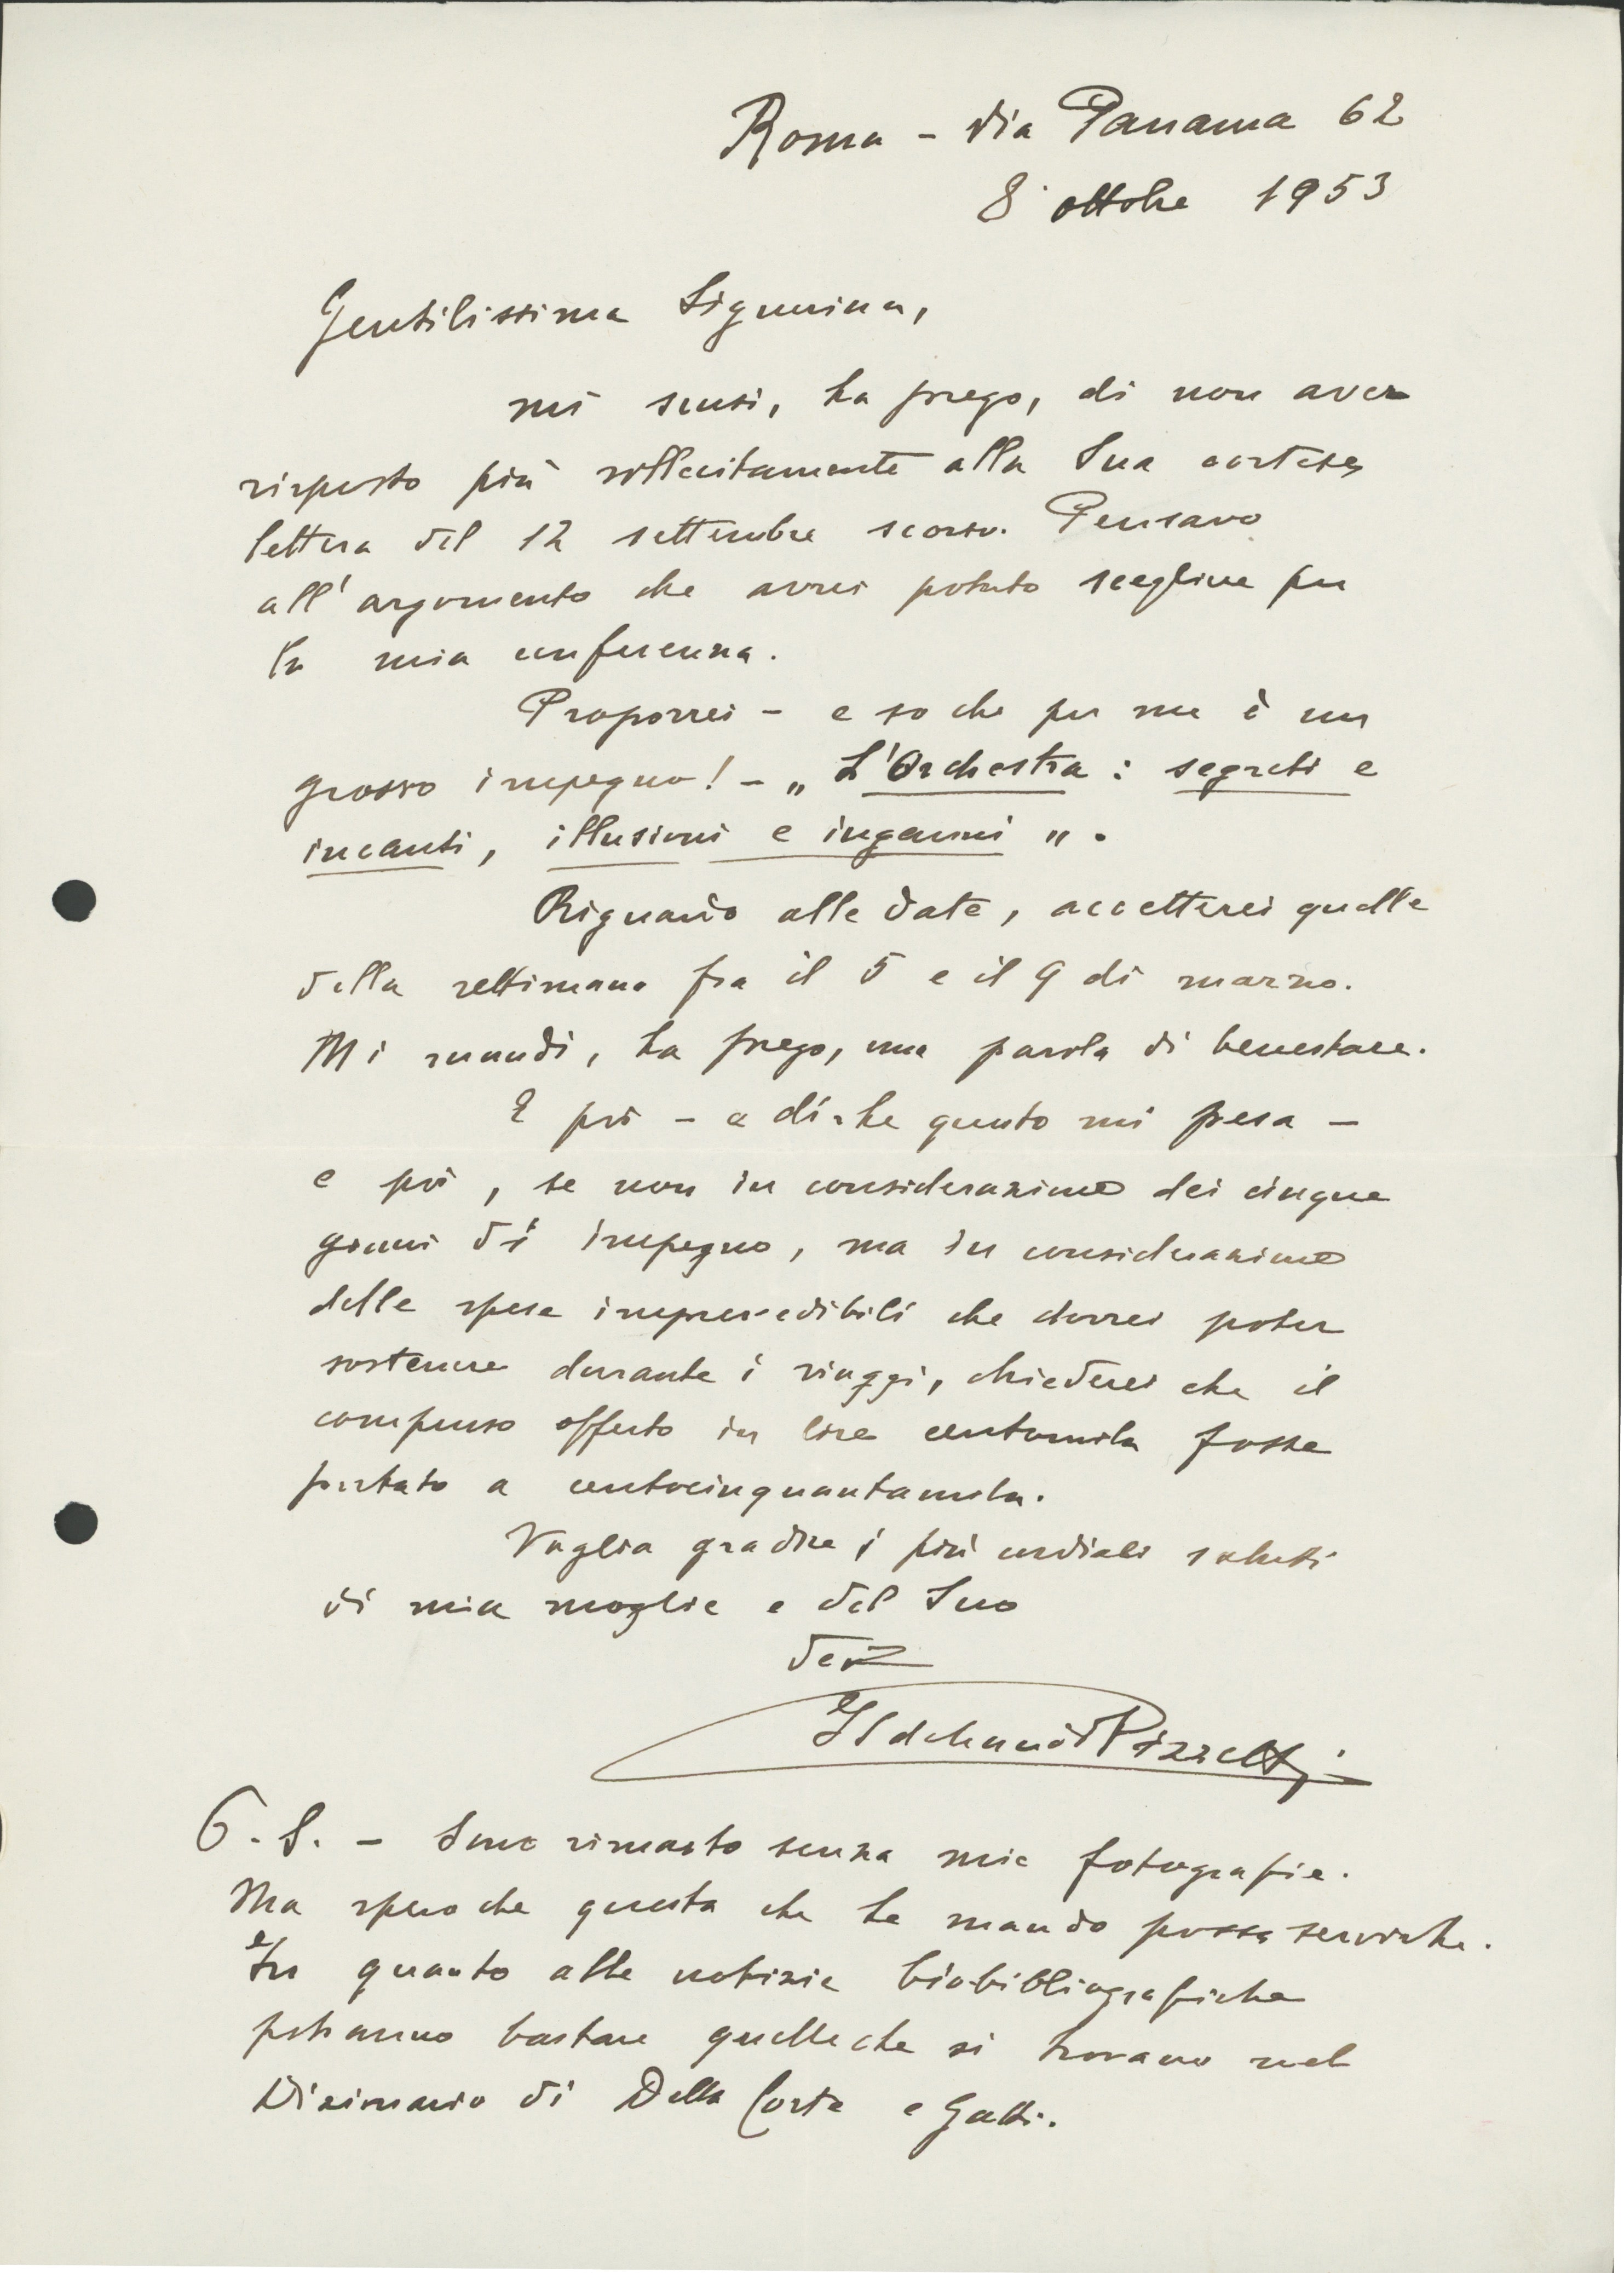 Roma - Via Panama 62
8 ottobre 1953
Gentilissima Signorina,
mi scusi, La prego, di non aver
risposto più sollecitamente alla Sua cortese
lettera del 12 settembre scorso. Pensavo
all'argomento che avrei potuto scegliere per
la mia conferenza.
Proporrei - e so che per me è un
grosso impegno! - „ L'Orchestra : segreti e
incanti, illusioni e inganni „ .
Riguardo alle date, accetterei quelle
della settimana fra il 5 e il 9 di marzo.
Mi mandi, La prego, una parola di benestare.
E poi - a dirle quanto mi pesa -
e poi, se non in considerazione dei cinque
giorni di impegno, ma in considerazione
delle spese imprevedibili che dovrei poter
sostenere durante i viaggi, chiederei che il
compenso offerto in lire centomila fosse
portato a centocinquantamila.
Voglia gradire i più cordiali saluti
di mia moglie e del Suo
dev
Ildebrando Pizzetti
P.S. - Sono rimasto senza mie fotografie.
Ma spero che questa che Le mando possa servirle.
In quanto alle notizie biobibliografiche
potranno bastare quelle che si trovano nel
Dizionario di Della Corte e Gatti.